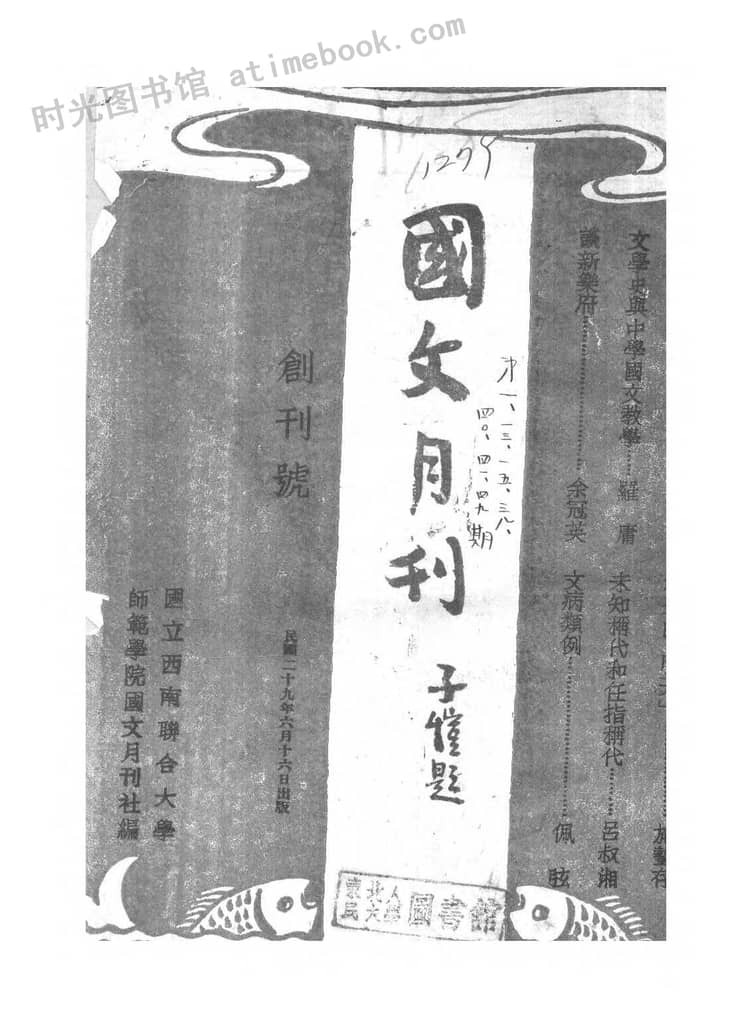 时光图书馆 atimebook.com
1279
文學史與中學國文教學……羅庸
談新樂府……余冠英
未知稱代和任指稱代……呂叔湘
文病類例……佩眩
國文月刊
子愷題
才一、一三、一五、三八、
四〇、四一、四九期
創刊號
民國二十九年六月十六日出版
國立西南聯合大學
師範學院國文月刊社編
東北人
民大學
圖書館